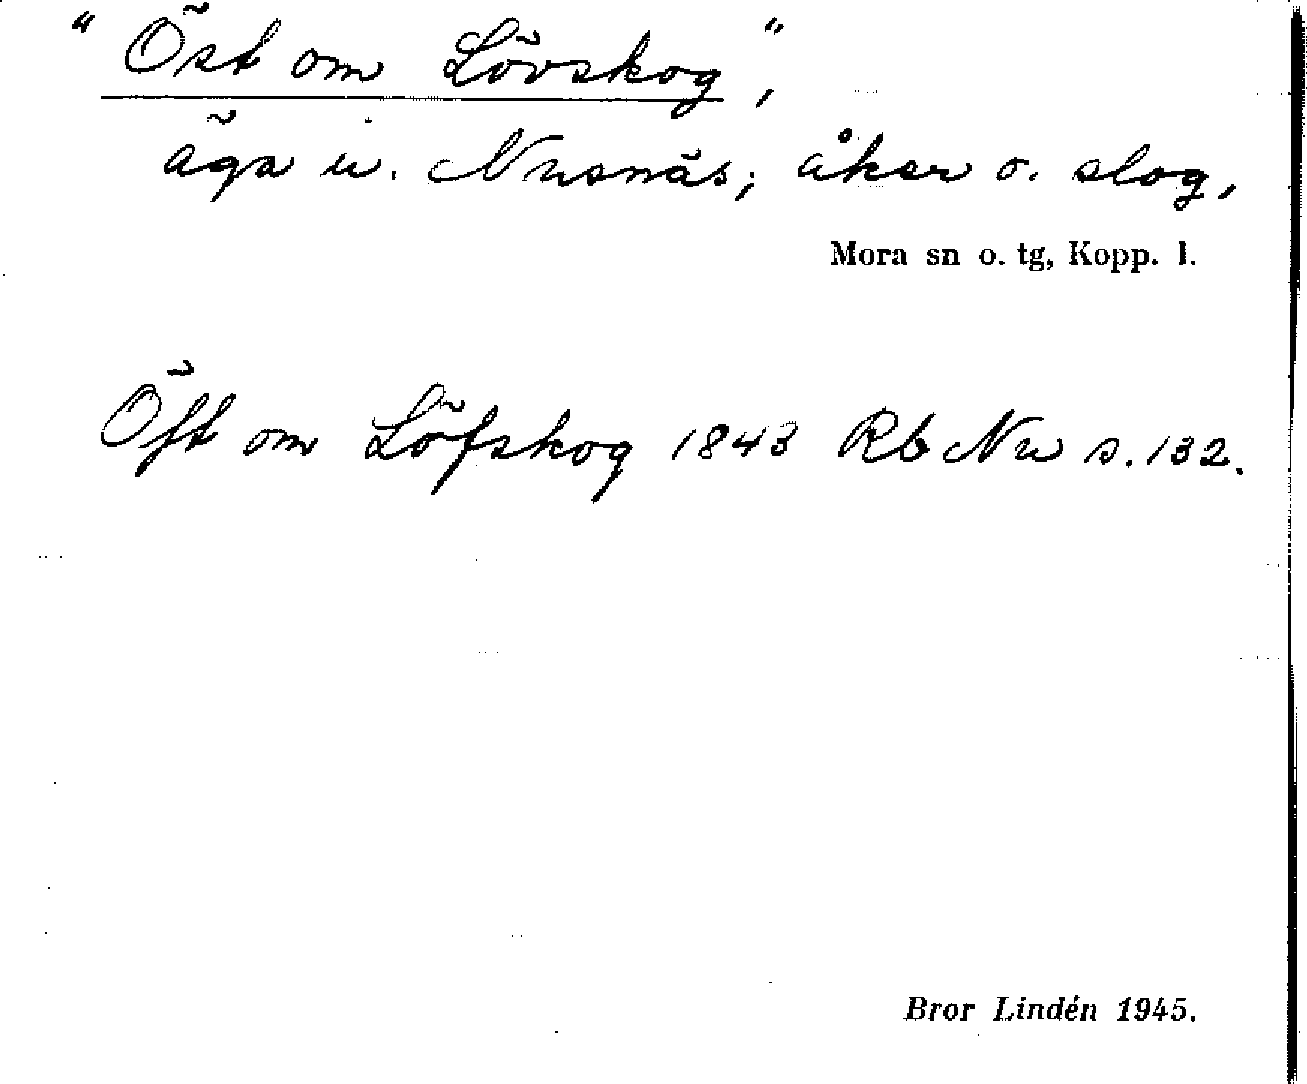 "Öst om Lövskog",
äga u. Nusnäs; åker o. slog,
Mora sn o. tg, Kopp. l.
Öſt om Löfskog 1843 Rb Nu s. 132.
Bror Lindén 1945.